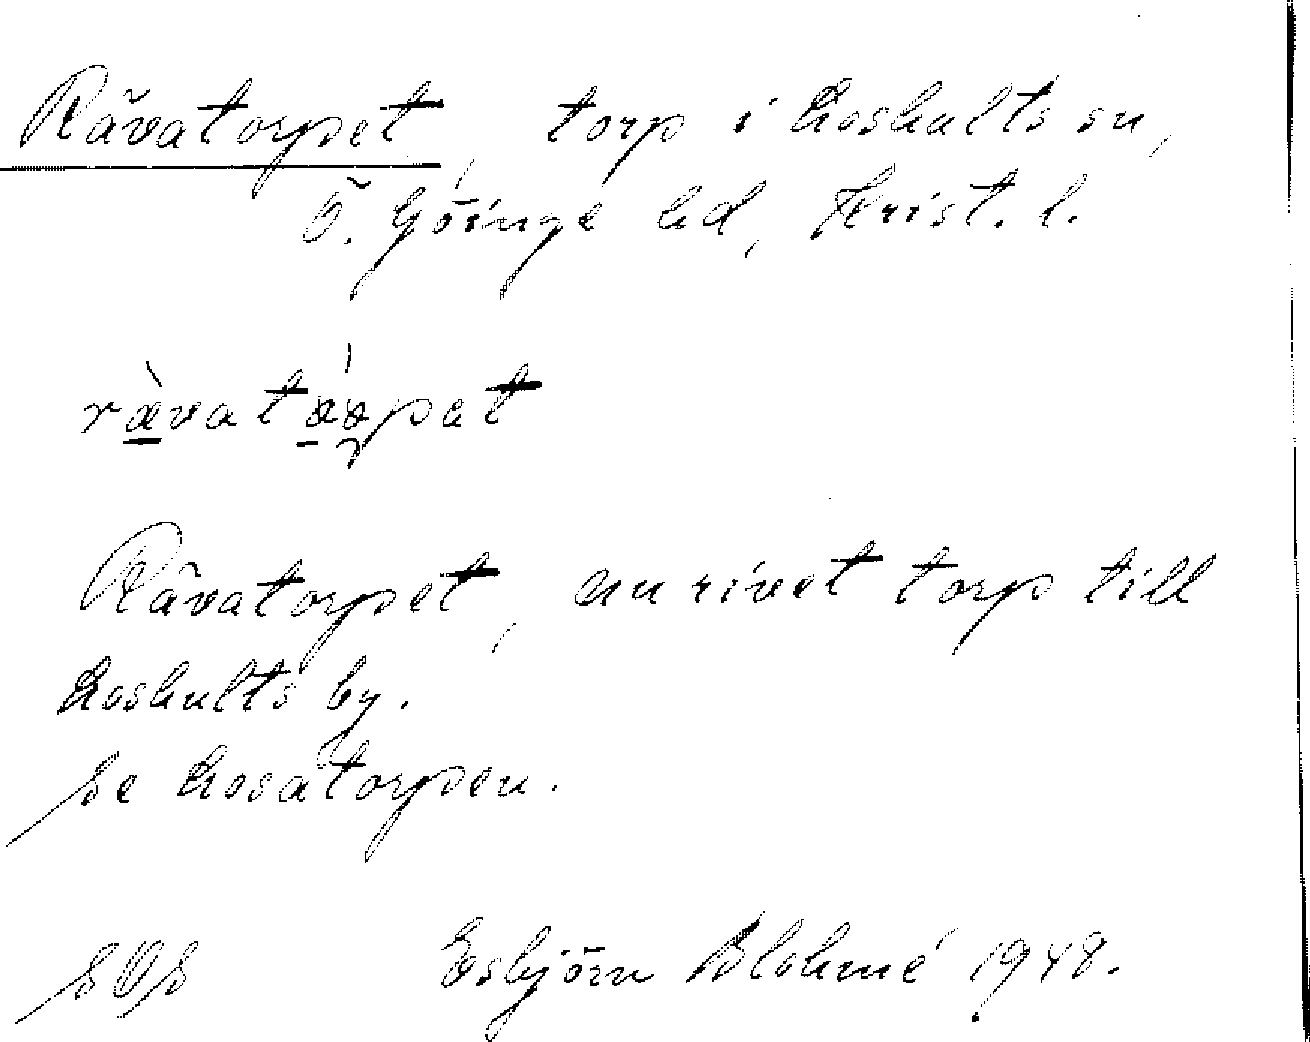 Rävatorpet, torp i Loshults sn,
Ö. Göinge hd, Krist. l.
Rävatorpet, nu rivet torp till
Loshults by.
Se Losatorpen.
SOS Esbjörn Blohmé 1948.